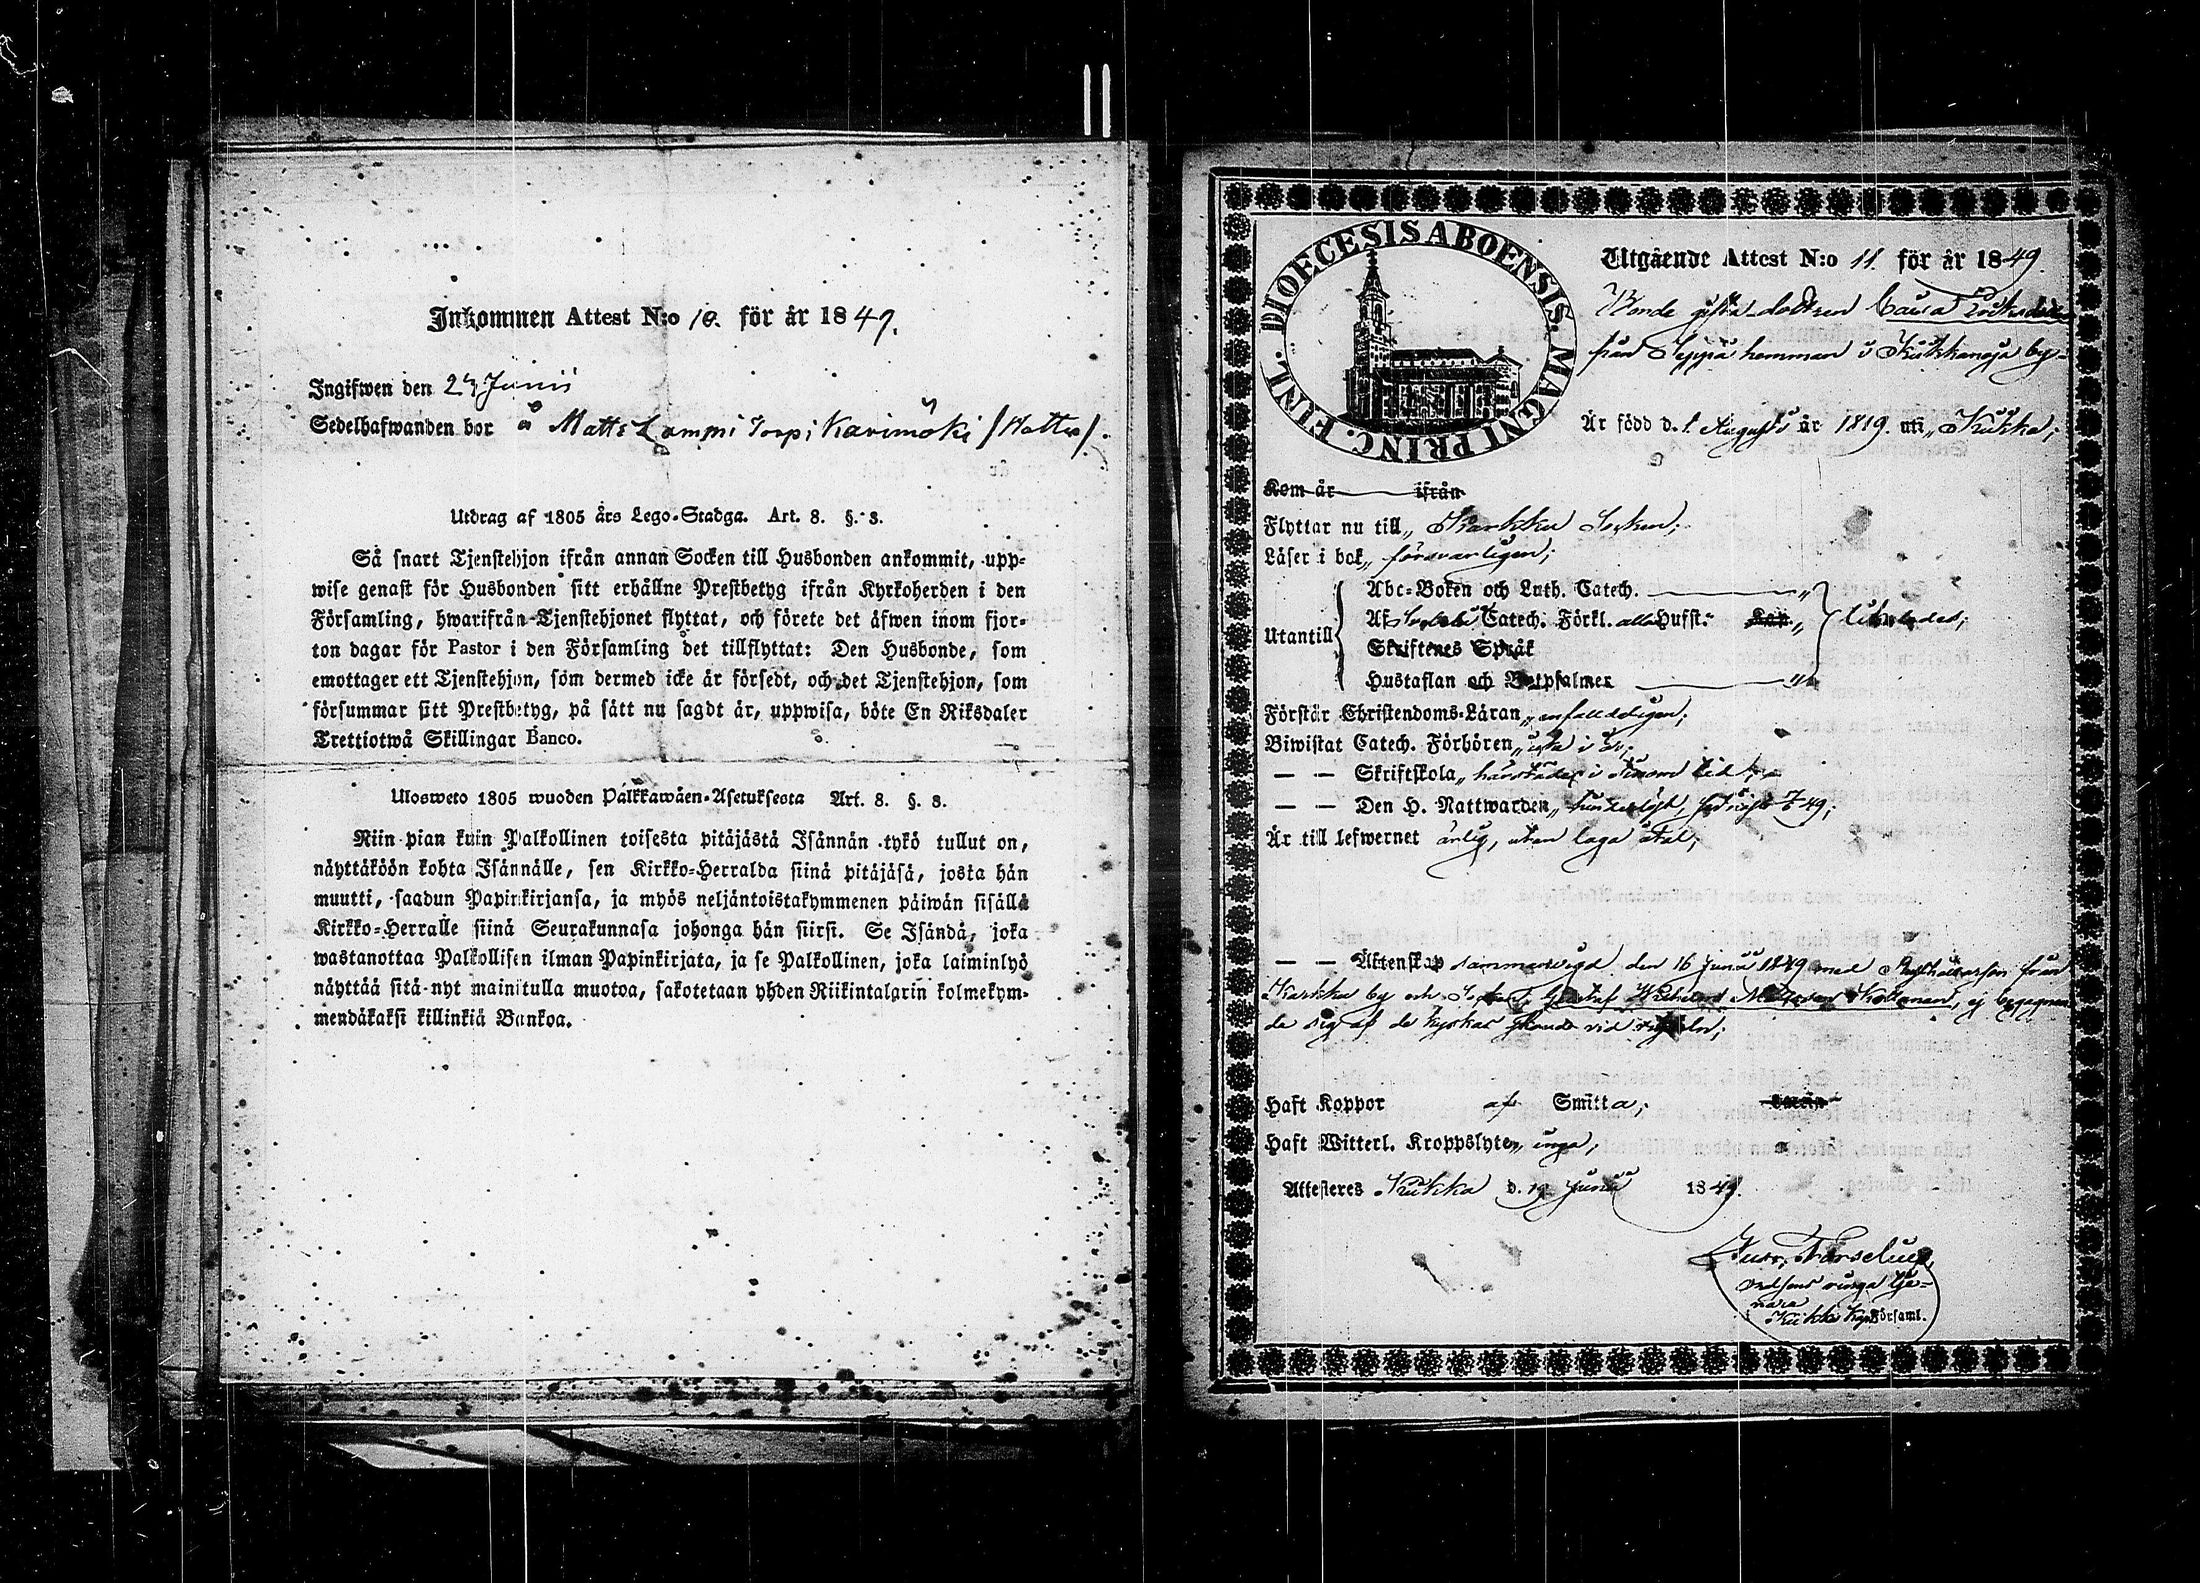 Inkommen Attest N:o 10. för år 1849.
Ingifwen den 27 Junii
Sedelhafwanden bor å Matts Lampi Torp i Karimäki
Utdrag af 1805 års Lego-Stadga. Art. 8. §. 8.
Så snart Tjenstehjon ifrån annan Socken till Husbonden ankommit, upp-
wise genast för Husbonden sitt erhållne Prestbetyg ifrån Kyrkoherden i den
Församling, hwarifrån Tjenstehjonet flyttat, och förete det äfwen inom fjor-
ton dagar för Pastor i den Församling det tillflyttat: Den Husbonde, som
emottager ett Tjenstehjon, som dermed icke är försedt, och det Tjenstehjon, som
försummar sitt Prestbetyg, på sätt nu sagdt är, uppwisa, böte En Riksdaler
Trettiotwå Skillingar Banco.
Ulosweto 1805 wuoden Palkkawäen-Asetuksesta Art. 8. §. 8.
Niin pian kuin Palkollinen toisesta pitäjästä Isännän tykö tullut on,
näyttäköön kohta Isännälle, sen Kirkko-Herralda siinä pitäjäsä, josta hän
muutti, saadun Papinkirjansa, ja myös neljäntoistakymmenen päiwän sisällä
Kirkko-Herralle siinä Seurakunnasa johonga hän siirsi. Se Isändä, joka
wastanottaa Palkollisen ilman Papinkirjata, ja se Palkollinen, joka laiminlyö
näyttää sitä nyt mainitulla muotoa, sakotetaan yhden Riikintalarin kolmekym-
mendäkaksi killinkiä Bankoa.
DIOECESIS ABOENSIS. MAGNI PRINC. FINL.
Utgående Attest N:o 11. för år 1849.
Bonde gifta dottren Caisa
från Seppä hemman i Kiikkanoja by
Är född d. 1 Augusti år 1819. uti Kiikka;
Kom år ifrån
Flyttar nu till Karkku Socken;
Läser i bok försvarligen;
Utantill
Abc-Boken och Luth. Catech.
Af Catech. Förkl. alla Hufst: Kan
Skriftenes Språk
Hustaflan och Botpsalmer
Förstår Christendoms-Läran enfalldeligen;
Biwistat Catech. Förhören i år;
— — Skriftskola härstädes i sinom tid;
— — Den H. Nattwarden 49;
Är till lefwernet ärlig, utan laga åtal;
— — Äktenskap sammanvigd den 16 Junii 1849 med från
Karkku by och Gustaf Wilhelm ej begagnan-
de sig af de kyskas vid
Haft Koppor af Smitta;
Haft Witterl. Kroppslyten inga;
Attesteras Kiikka d. 19 Junii 1849.
i Kiikka Kap. Församl.